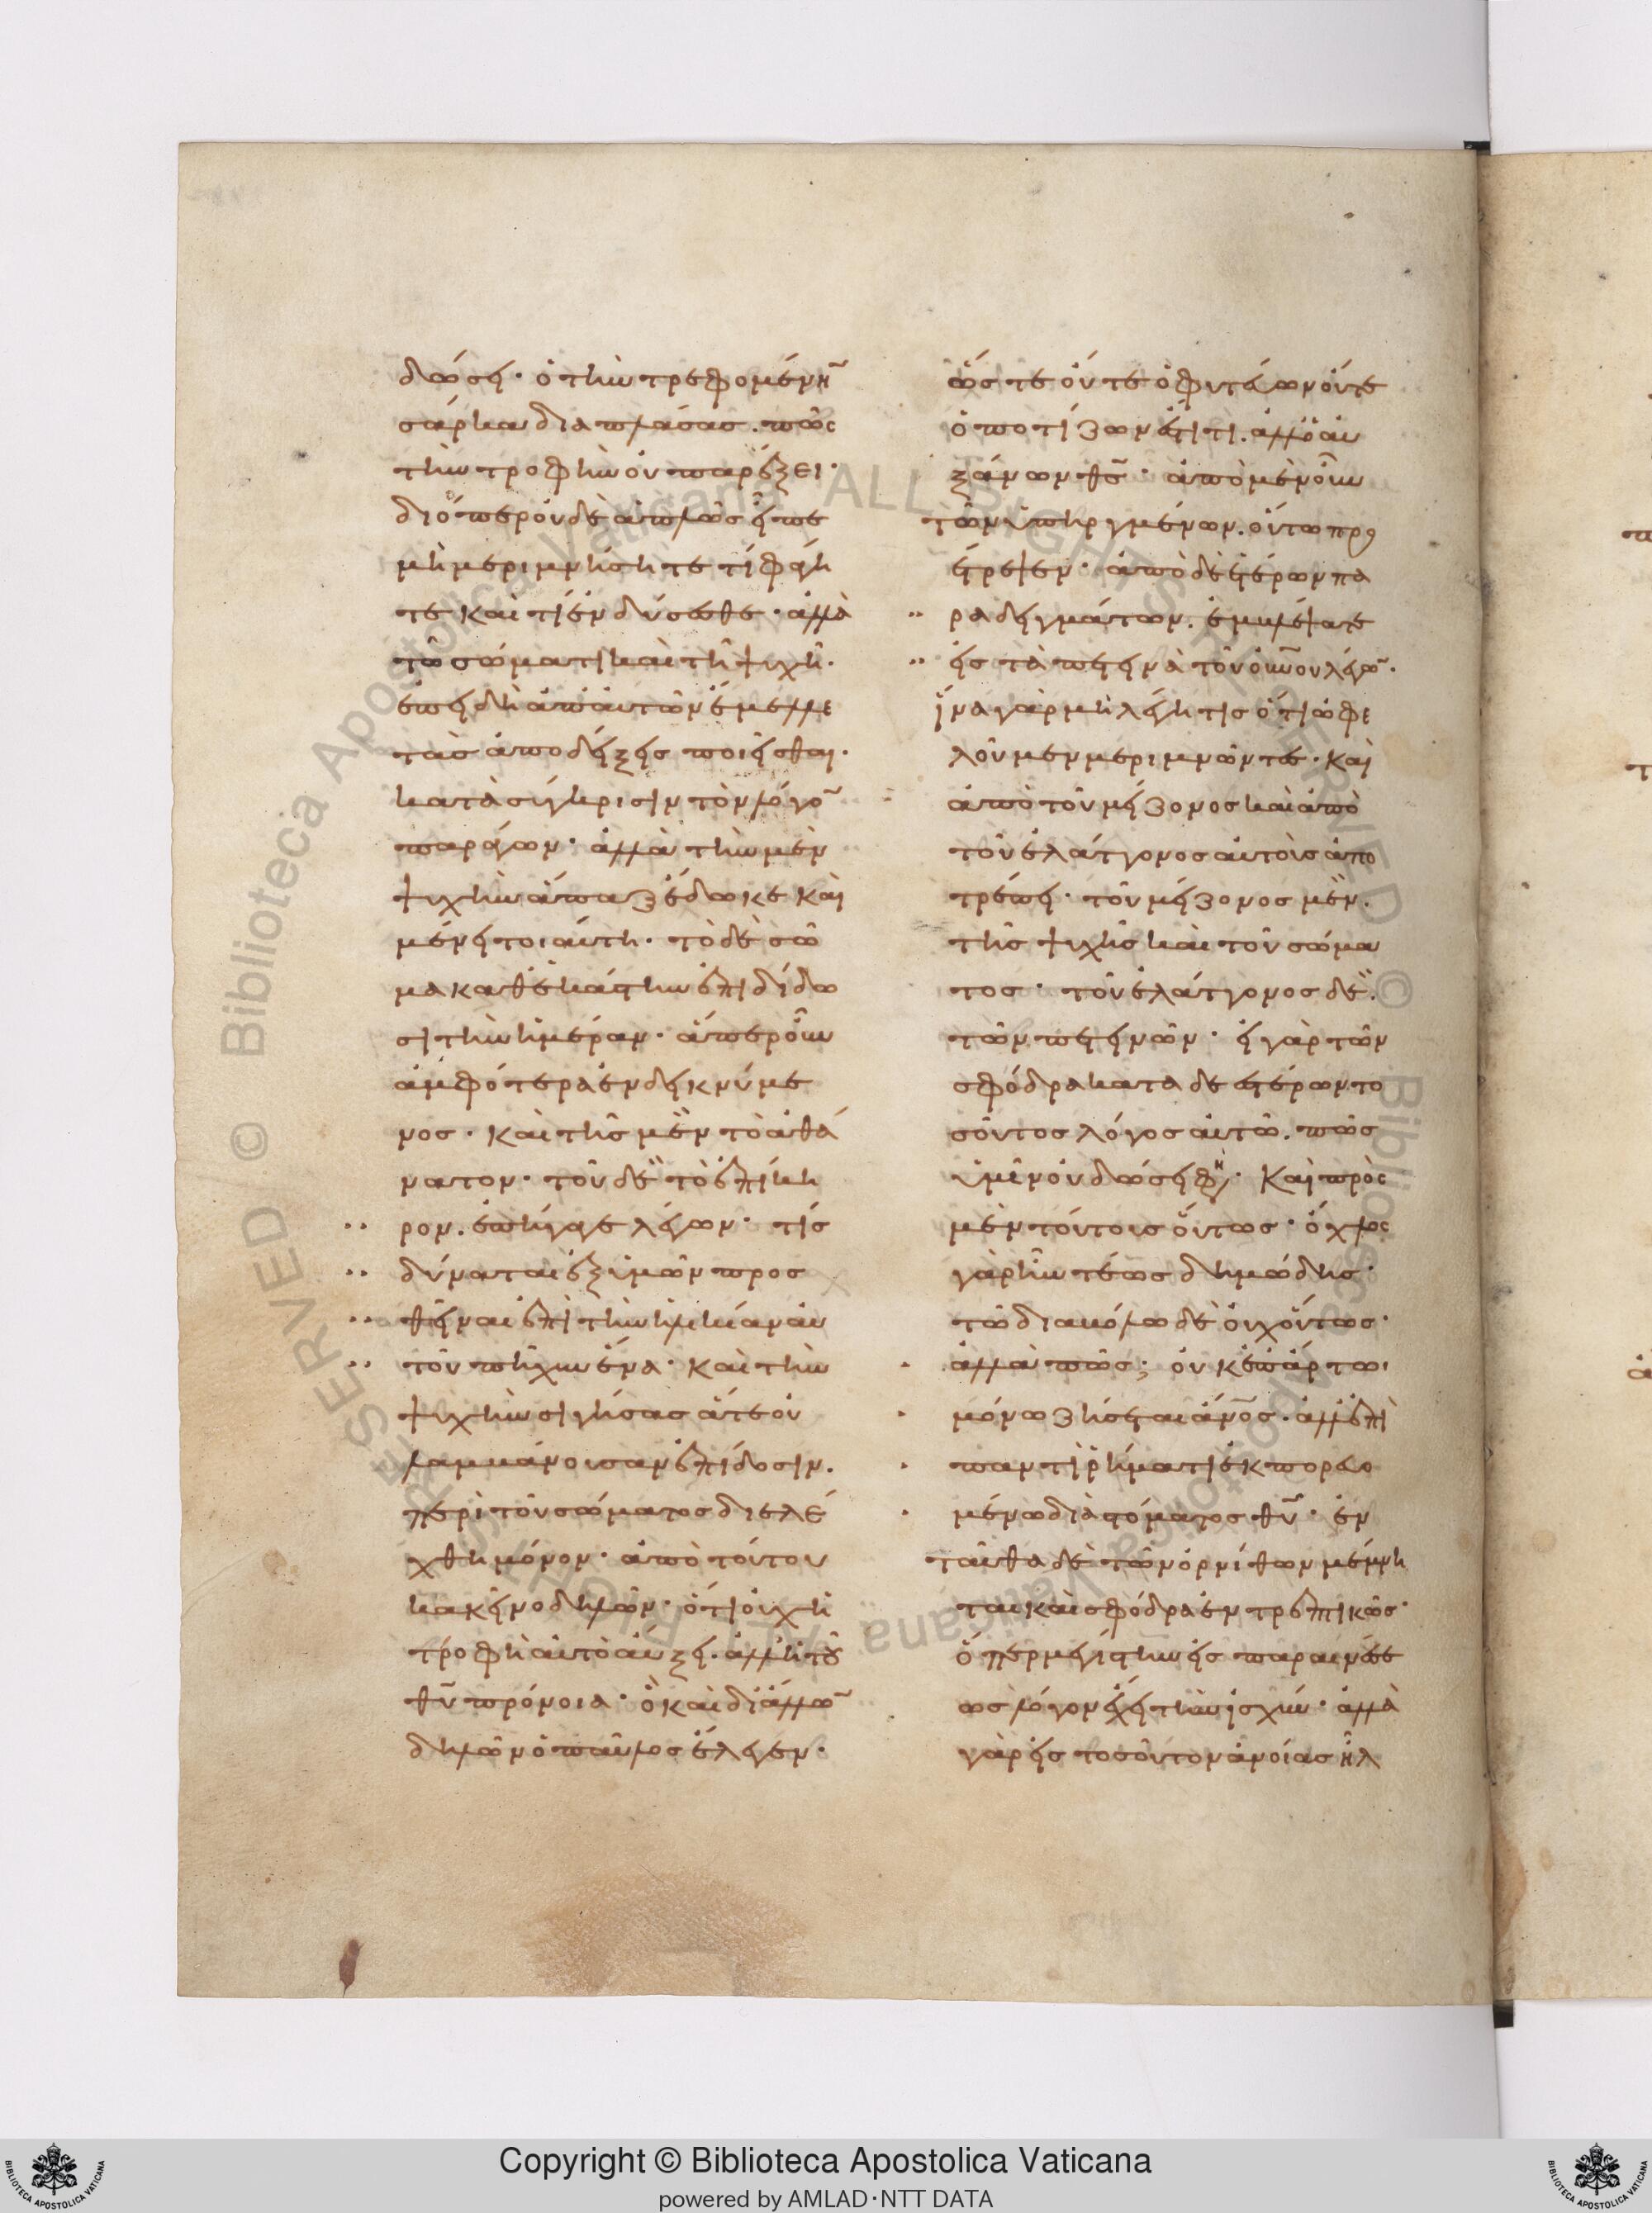 δώσει· ὁ τὴν τρεφομένη̅
σάρκα διαπλάσας. πῶς
τὴν τροφὴν οὐ παρέξει·
διόπερ οὐδὲ ἁπλῶς εἶπε
μὴ μεριμνήσητε τί φάγη
τε καὶ τί ἐνδύσεσθε· ἀλλὰ
τῶ σώματι καὶ τῆ ψυχῆ·
ἐπειδὴ ἀπ' αὐτῶν ἔμελλε
τὰς ἀποδείξεις ποιεῖσθαι·
κατὰ σύγκρισιν τὸν λόγο̅
παράγων· ἀλλὰ τὴν μὲν
ψυχὴν ἅπαξ ἔδωκε καὶ
μένει τοιαύτη· τὸ δὲ σῶ
μα καθ' ἑκάστην ἐπιδίδω
σι τὴν ἡμέραν· ἅπερ οὖν
ἀμφότερα ἐνδεικνύμε
νος· καὶ τῆς μὲν τὸ ἀθά
νατον· τοῦ δὲ τὸ ἐπίκη
ρον. ἐπήγαγε λέγων· τίς
δύναται ἐξ ὑμῶν προσ
θεῖναι ἐπὶ τὴν ἡλικίαν αὐ
τοῦ πῆχυν ἕνα· καὶ τὴν
ψυχὴν σιγήσας ἅτε οὐ
λαμβάνουσαν ἐπίδοσιν.
περὶ τοῦ σώματος διελέ
χθη μόνον· ἀπὸ τούτου
κἀκεῖνο δηλῶν· ὅτι οὐχ ἡ
τροφὴ αὐτὸ αὔξει. ἀλλ' ἡ τοῦ
θυ̅ πρόνοια· ὃ καὶ δι' ἄλλω̅
δηλῶν ὁ παῦλος ἔλεγεν·
ὥστε οὔτε ὁ φυτεύων οὔτε
ὁ ποτίζων ἐστί τι. ἀλλ' ὁ αὐ
ξάνων θς̅· ἀπὸ μὲν οὖν
τῶν ὑπηργμένων. οὕτω προ
έτρεψεν· ἀπὸ δὲ ἑτέρων πα
ραδειγμάτων. ἐμβλέψατε
εἰς τὰ πετεινὰ τοῦ ουνου λέγω̅·
ἵνα γὰρ μὴ λέγη τις ὅτι ὠφε
λοῦμεν μεριμνῶντες· καὶ
ἀπὸ τοῦ μείζονος καὶ ἀπὸ
τοῦ ἐλάττονος αὐτοὺς ἀπο
τρέπει· τοῦ μείζονος μὲν.
τῆς ψυχῆς καὶ τοῦ σώμα
τος· τοῦ ἐλάττονος δὲ.
τῶν πετεινῶν· εἰ γὰρ τῶν
σφόδρα καταδεεστέρων το
σοῦτος λόγος αὐτῶ. πῶς
ὑμῖν οὐ δώσει φη· καὶ πρὸς
μὲν τούτους οὕτως· ὄχλος
γὰρ ἦν τέως δημώδης·
τῶ διαβόλω δὲ οὐχ οὕτως·
ἀλλὰ πῶς; οὐκ ἐπ' ἄρτωι
μόνω ζήσεται ἄν̅ος· ἀλλ' ἐπὶ
παντὶ ῥήματι ἐκπορευο
μένω διὰ στόματος θυ̅· ἐν
ταῦθα δὲ τῶν ὀρνίθων μέμνη
ται καὶ σφόδρα ἐντρεπτικῶς·
ὅπερ μεγίστην εἰς παραινέσε
ως λόγον ἔχει τὴν ἰσχύν· ἀλλὰ
γὰρ εἰς τοσοῦτον ἀνοίας ἦλ
Copyright © Biblioteca Apostolica Vaticana
powered by AMLAD·NTT DATA